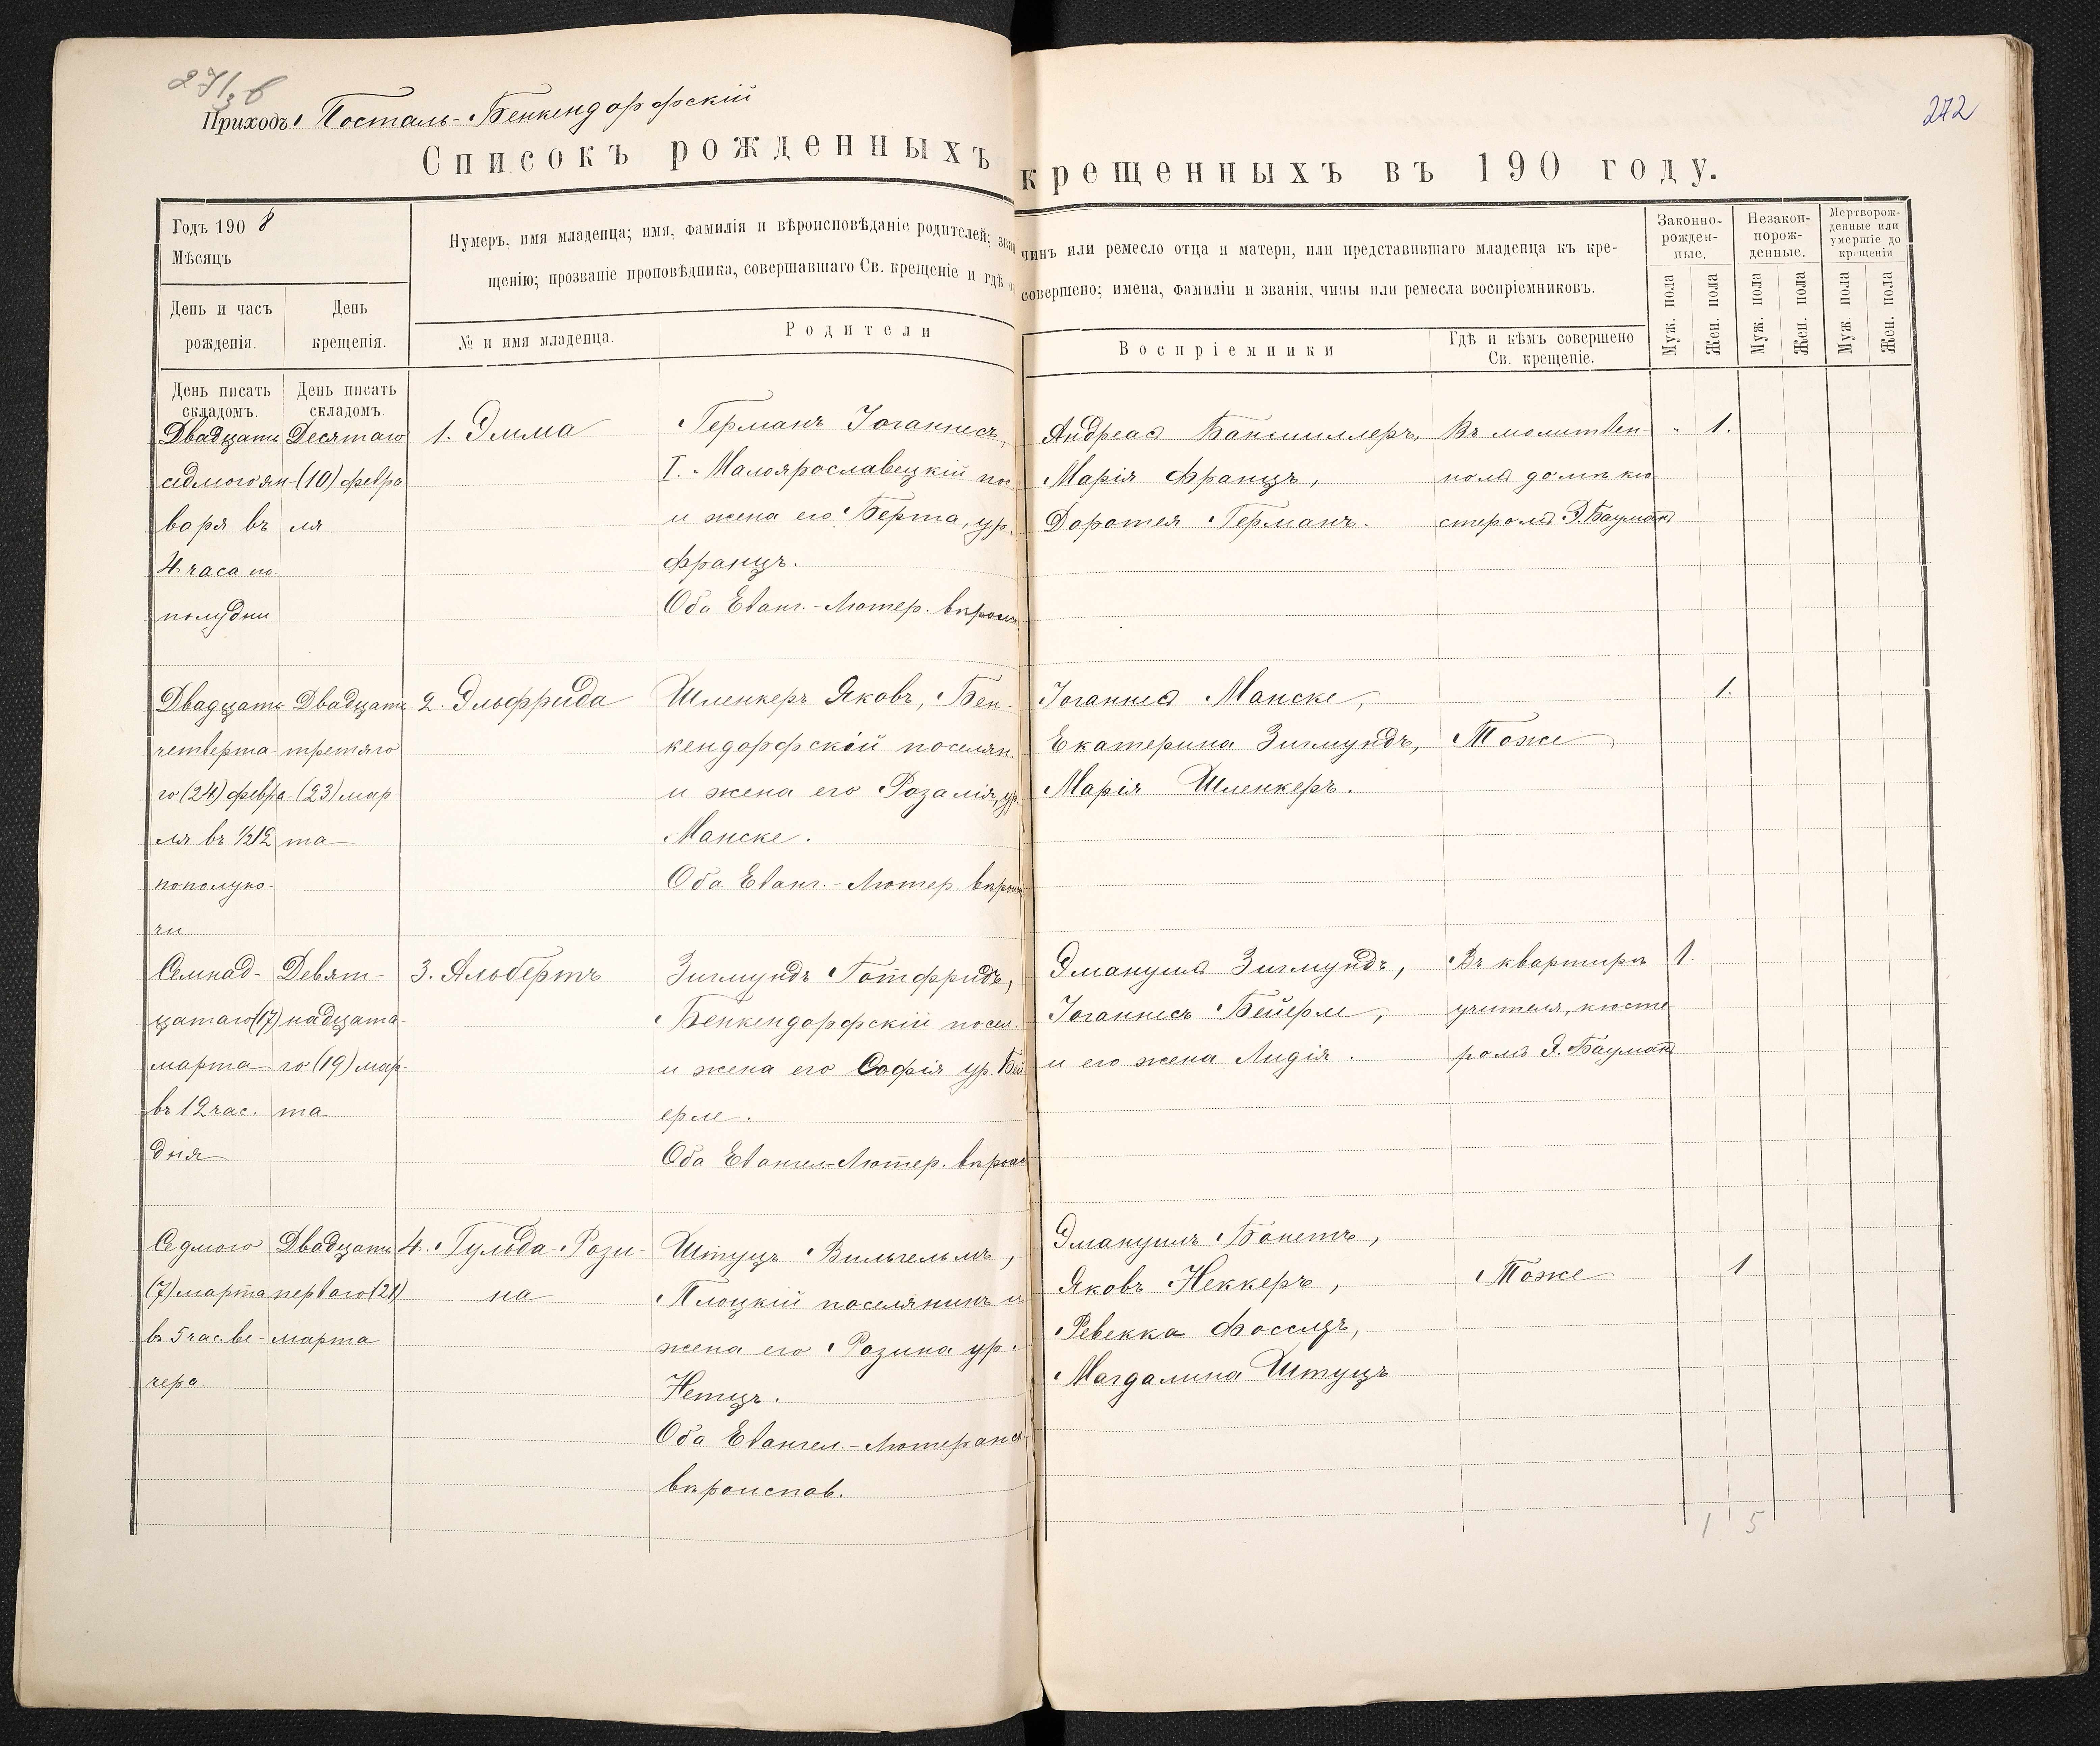 271 об
272
Приходъ Посталь-Бенкендорфскій
Списокъ рожденныхъ крещенныхъ въ 190 году.
Годъ 190 8
Мѣсяцъ
День и часъ рожденія.
День крещенія.
Нумеръ, имя младенца; имя, фамилія и вѣроисповѣданіе родителей; чинъ или ремесло отца и матери, или представившаго младенца къ кре-
щенію; прозваніе проповѣдника, совершавшаго Св. крещеніе и гдѣ совершено; имена, фамиліи и званія, чины или ремесла воспріемниковъ.
№ и имя младенца.
Родители
Воспріемники
Гдѣ и кѣмъ совершено
Св. крещеніе.
Законно-
рожден-
ные.
Незакон-
норож-
денные.
Мертворож-
денные или
умершіе до
крещенія
Муж. пола
Жен. пола
Муж. пола
Жен. пола
Муж. пола
Жен. пола
День писать
складомъ.
День писать
складомъ.
Двадцать
седмого ян-
варя въ
4 часа по-
полудни
Десятаго
(10) февра
ля
1. Эмма
Германъ Іоганнесъ,
I. Малоярославецкій пос
и жена его Берта, ур.
Францъ.
Оба Еванг.-Лютер. вѣроис
Андреас Банмиллеръ,
Марія Францъ,
Доротея Германъ.
Въ молитвен-
ном домѣ кю
стером Э. Бауман
1.
Двадцать
четверта-
го (24) февра-
ля въ ½12
пополуно-
чи
Двадцать
третяго
(23) мар-
та
2. Эльфрида
Шленкеръ Яковъ, Бен-
кендорфскій поселян.
и жена его Розалія, ур.
Манске.
Оба Еванг.-Лютер. вѣроис
Іоганнес Манске,
Екатерина Зигмундъ,
Марія Шленкеръ.
Тоже
1.
Семнад-
цатаго (17)
марта
въ 12 час.
дня
Девят-
надцата-
го (19) мар-
та
3. Альбертъ
Зигмундъ Готфридъ,
Бенкендорфскій посел.
и жена его Софія ур. Бей-
ерле.
Оба Евангел-Лютер. вѣроис
Эмануил Зигмундъ,
Іоганнесъ Бейерле,
и его жена Лидія.
Въ квартирѣ
учителя, кюсте-
ром Э. Бауман
1
Седмого
(7) марта
въ 5 час. ве-
чера.
Двадцать
перваго (21)
марта
4. Гульда Рози-
на
Штуцъ Вильгельмъ,
Плоцкій поселянинъ и
жена его Розина ур.
Нетцъ.
Оба Евангел.-Лютеранс
вѣроиспов.
Эмануилъ Бонетъ,
Яковъ Неккеръ,
Ревекка Фосслеръ,
Магдалина Штуцъ
Тоже
1
1 5